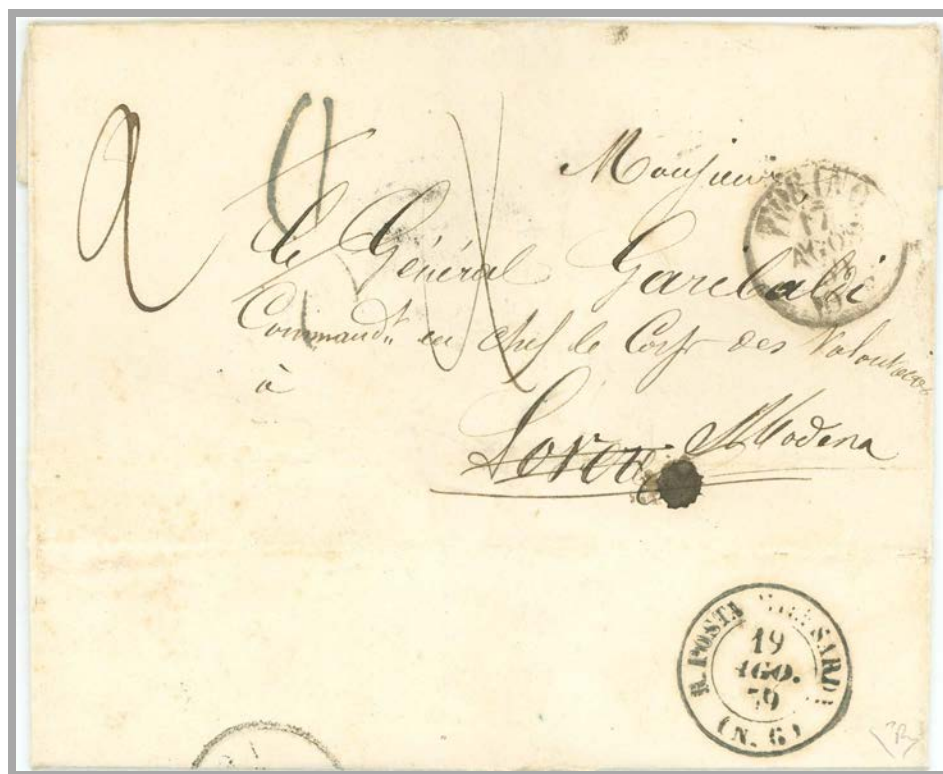 2
Monsieur
Le Général Garibaldi
Command.t en chef le Corps des Volontaires
à
Modena
TORINO
17
AGOS
R. POSTA SARDA
19
AGO.
59
(N. 6)